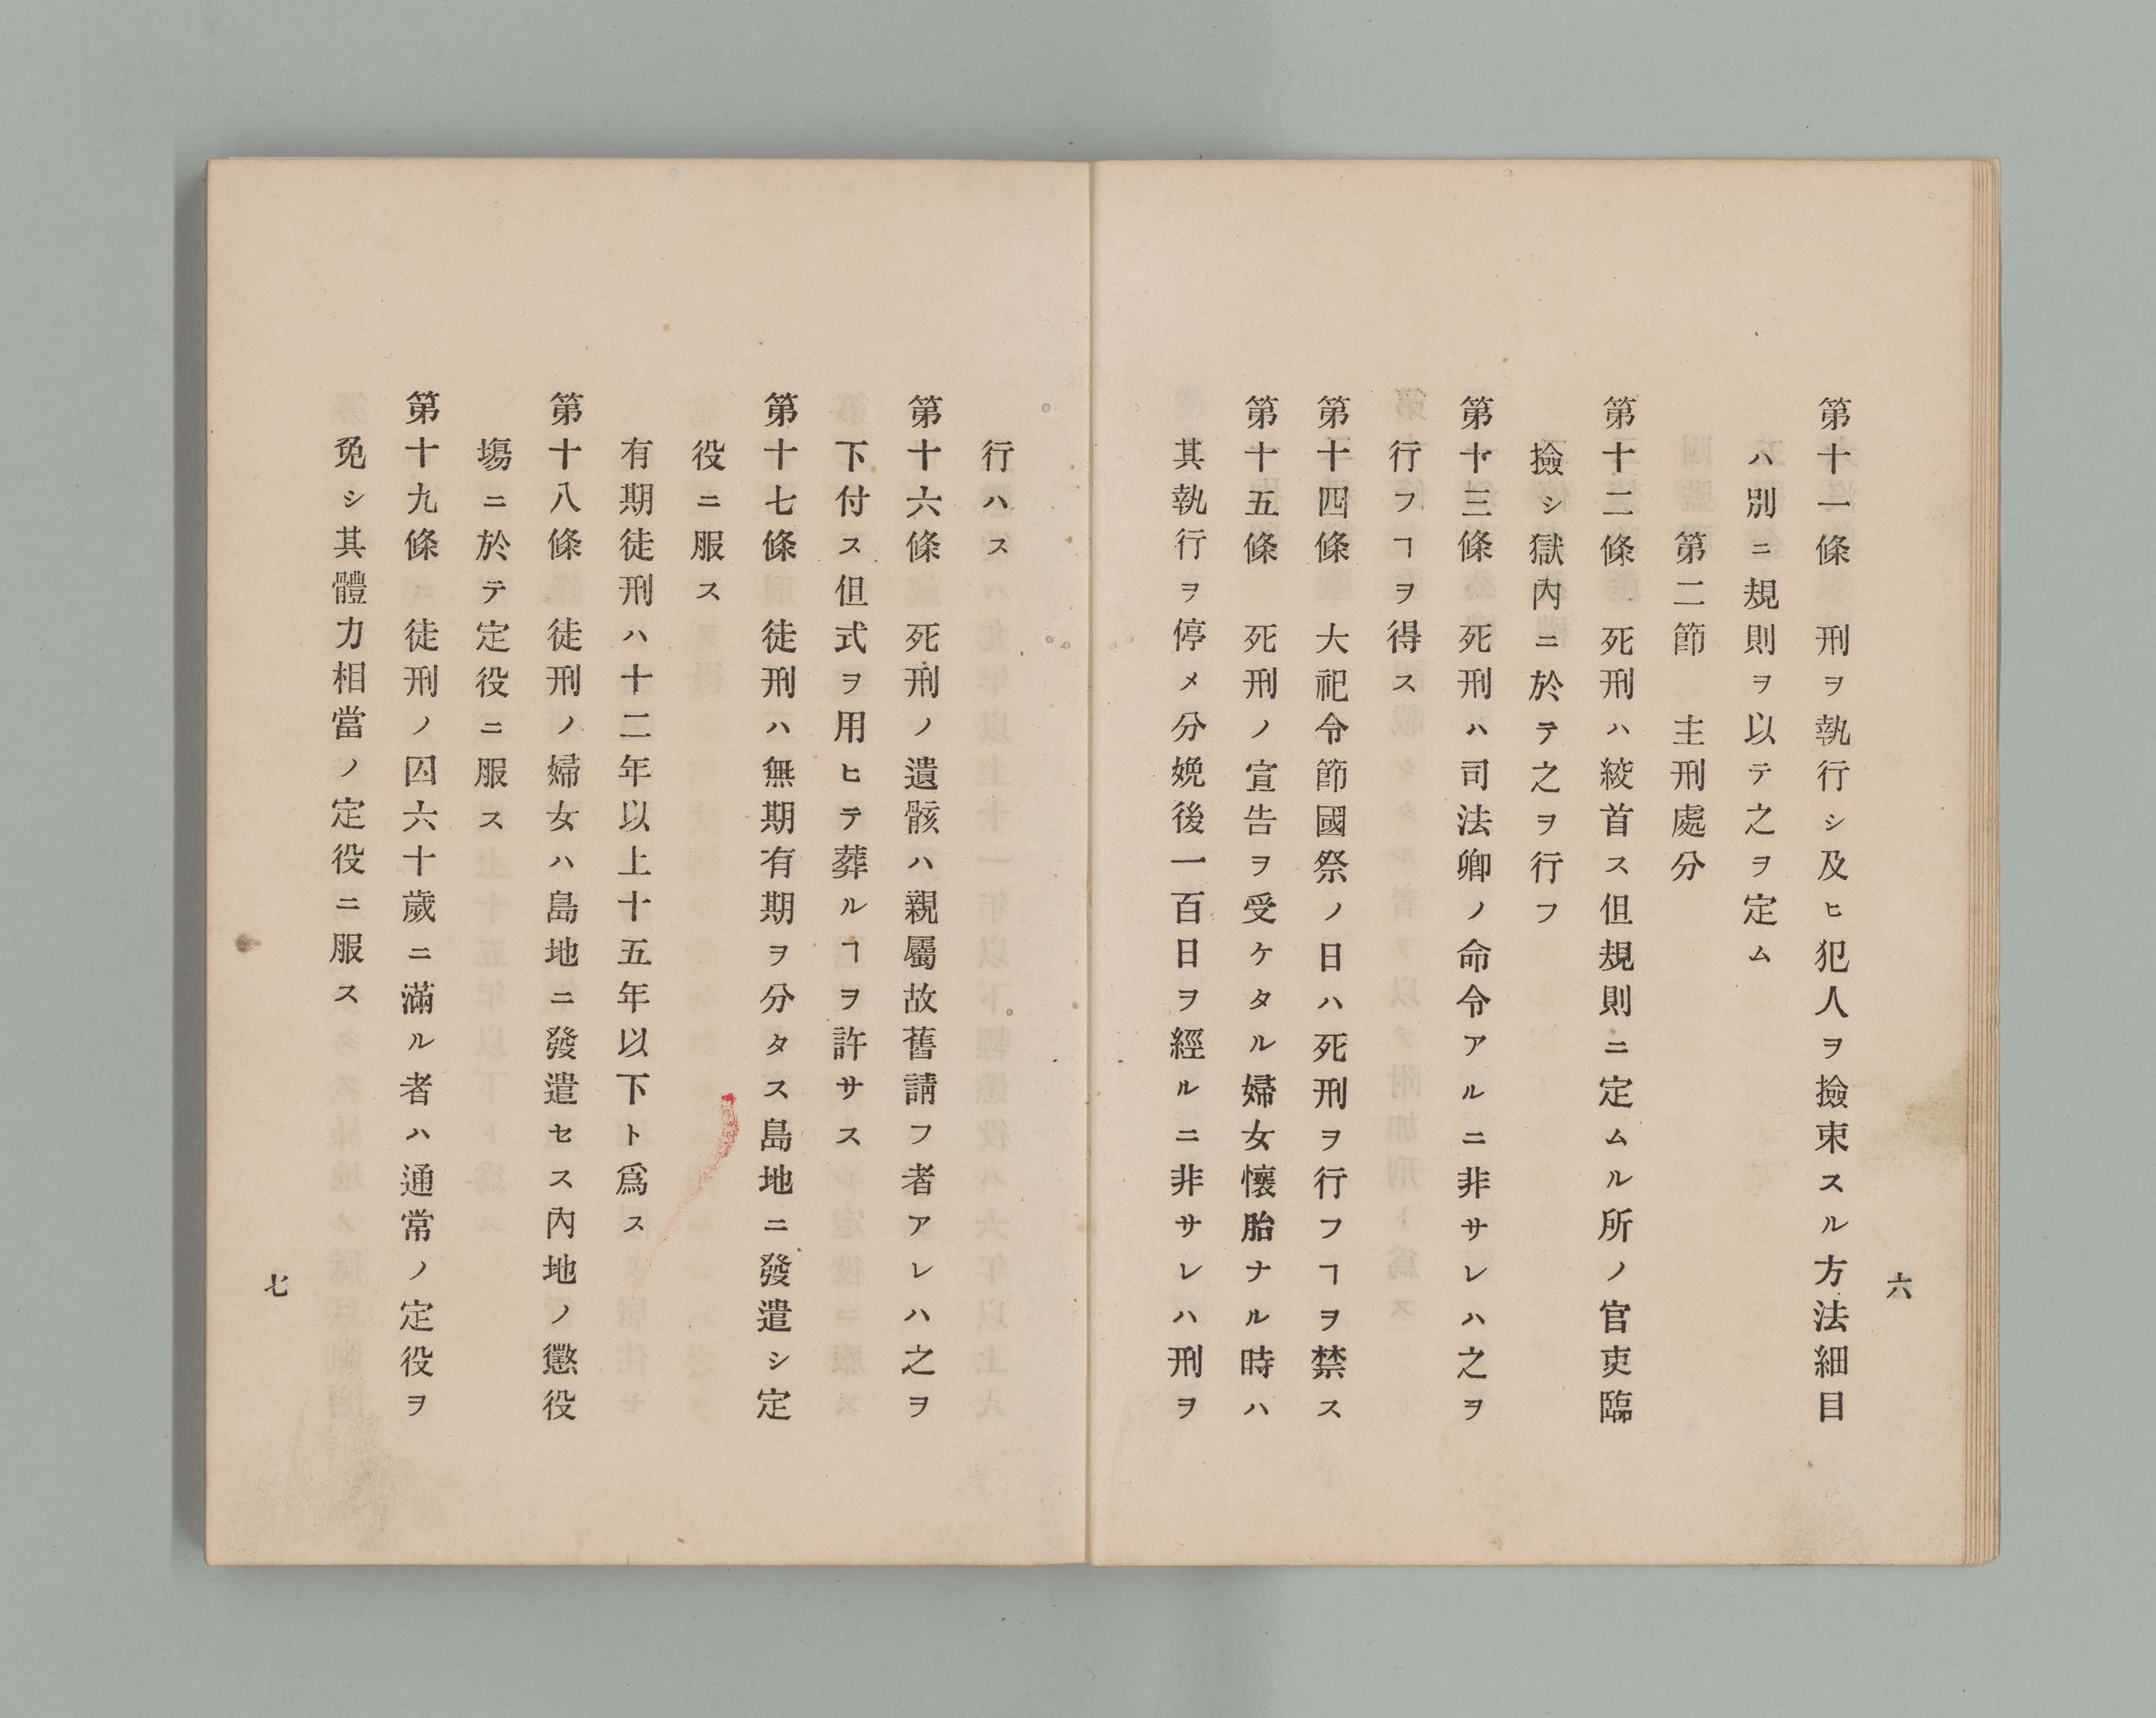 第十一條　刑ヲ執行シ及ヒ犯人ヲ撿束スル方法細目
ハ別ニ規則ヲ以テ之ヲ定ム
第二節　主刑處分
第十二條　死刑ハ絞首ス但規則ニ定ムル所ノ官吏臨
撿シ獄內ニ於テ之ヲ行フ
第十三條　死刑ハ司法卿ノ命令アルニ非サレハ之ヲ
行フヿヲ得ス
第十四條　大祀令節國祭ノ日ハ死刑ヲ行フヿヲ禁ス
第十五條　死刑ノ宣告ヲ受ケタル婦女懷胎ナル時ハ
其執行ヲ停メ分娩後一百日ヲ經ルニ非サレハ刑ヲ
六
行ハス
第十六條　死刑ノ遺骸ハ親屬故舊請フ者アレハ之ヲ
下付ス但式ヲ用ヒテ葬ルヿヲ許サス
第十七條　徒刑ハ無期有期ヲ分タス島地ニ發遣シ定
役ニ服ス
有期徒刑ハ十二年以上十五年以下ト爲ス
第十八條　徒刑ノ婦女ハ島地ニ發遣セス內地ノ懲役
塲ニ於テ定役ニ服ス
第十九條　徒刑ノ囚六十歲ニ滿ル者ハ通常ノ定役ヲ
免シ其體力相當ノ定役ニ服ス
七